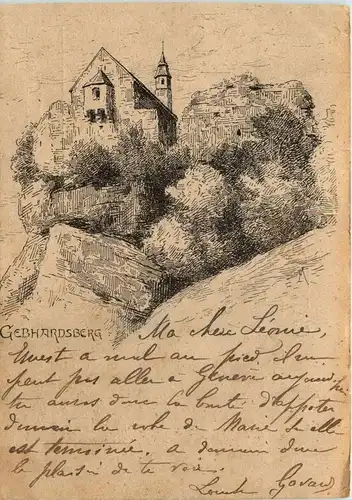 GEBHARDSBERG
Ma chère Léonie,
Ernest a mal au pied, il ne
peut pas aller à Genève aujourd'hui
tu auras donc la bonté d'apporter
demain la robe de Marie si elle
est terminée, à demain donc
le plaisir de te voir.
Louise